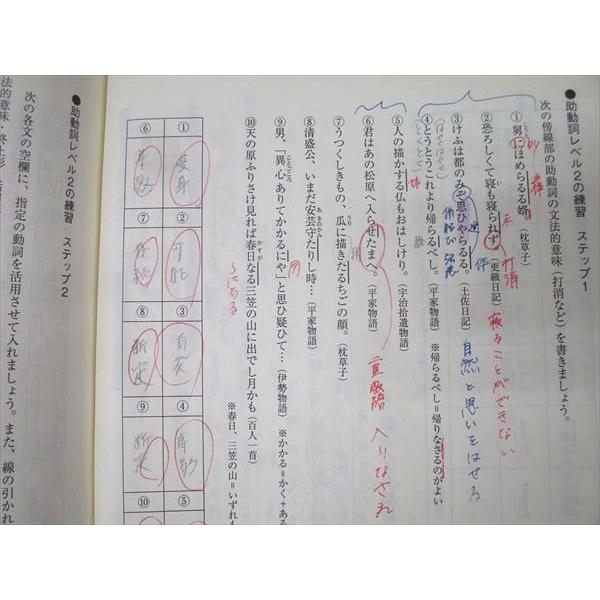 ●助動詞レベル2の練習 ステップ1
次の傍線部の助動詞の文法的意味（打消など）を書きましょう。
①舅にほめらるる婿。（枕草子）
by
②恐ろしくて寝も寝られず。（更級日記）
未
打消
寝ることができない
③けふは都のみぞ思ひやらるる。（土佐日記）
自然と思いをはせる
④とうとうこれより帰らるべし。（平家物語）※帰らるべし＝帰りなさるのがよい
⑤人の描かする仏もおはしけり。（宇治拾遺物語）
⑥君はあの松原へ入らせたまへ。（平家物語）
用
入りなされ
⑦うつくしきもの、瓜に描きたるちごの顔。（枕草子）
⑧清盛公、いまだ安芸守たりし時…（平家物語）
あきのかみ
⑨男、「異心ありてかかるにや」と思ひ疑ひて…（伊勢物語）※かかる＝かく＋ある
ことごころ
用
⑩天の原ふりさけ見れば春日なる三笠の山に出でし月かも（百人一首）
かすが
にある
※春日、三笠の山＝いずれも
①
受身
②
可能
③
自発
④
尊敬
⑤
⑥
尊敬
⑦
存続
⑧
断定
⑨
断定
⑩
●助動詞レベル2の練習 ステップ2
次の各文の空欄に、指定の動詞を活用させて入れましょう。また、線の引かれ